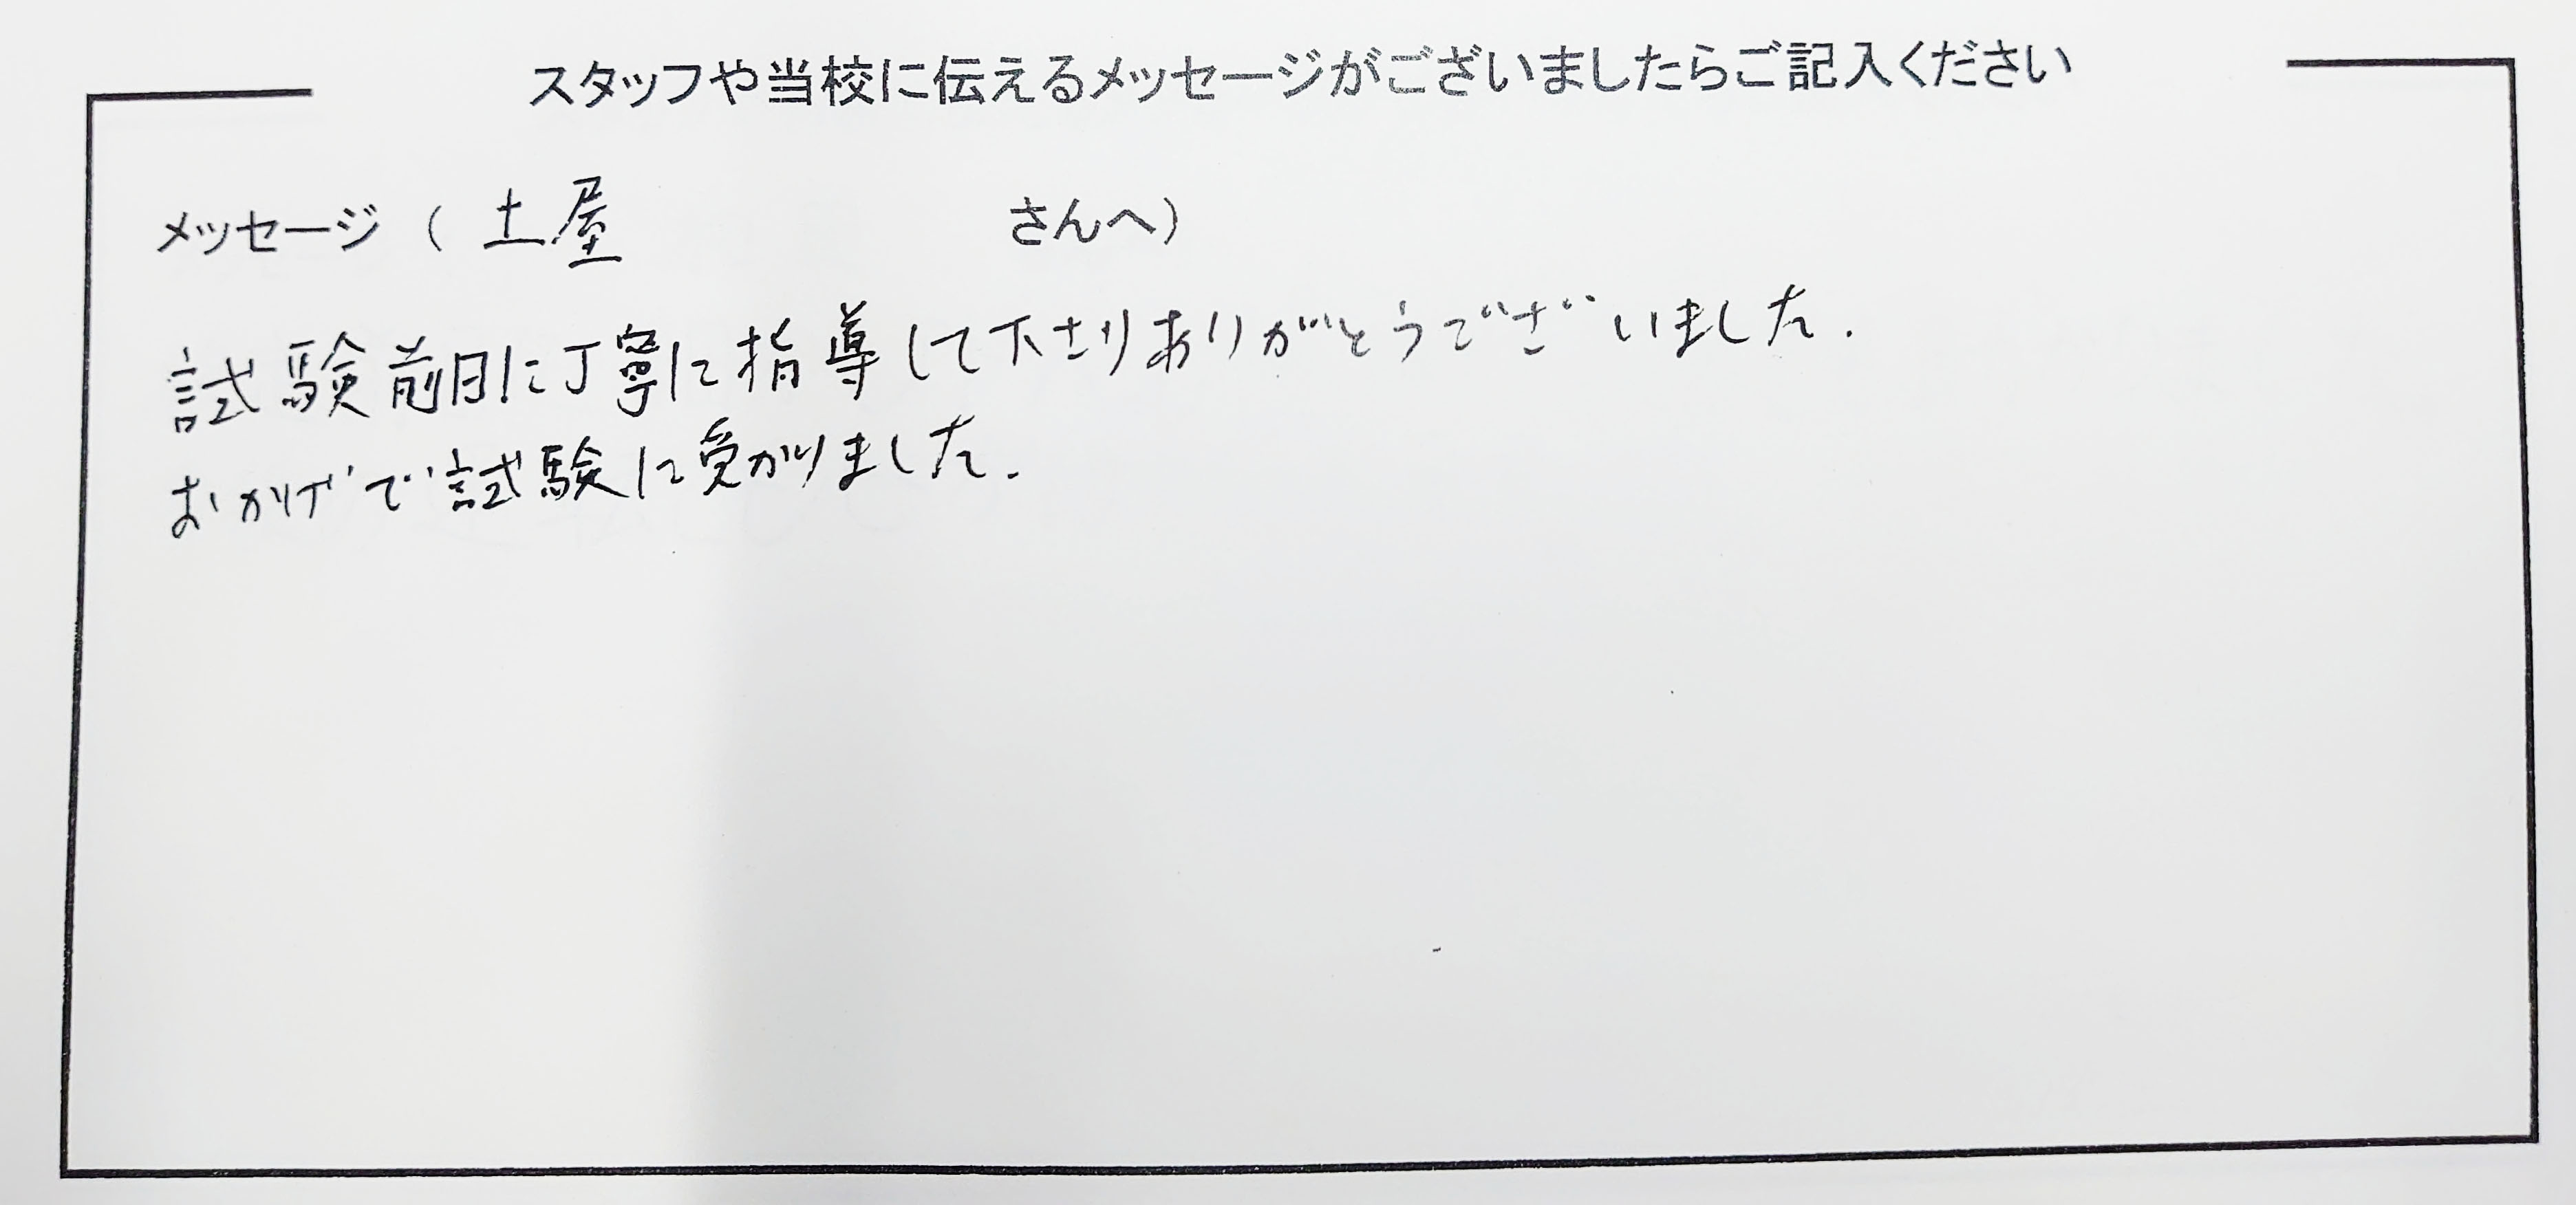 スタッフや当校に伝えるメッセージがございましたらご記入ください
メッセージ（ 土屋 さんへ）
試験前日に丁寧に指導して下さりありがとうございました.
おかげで試験に受かりました.